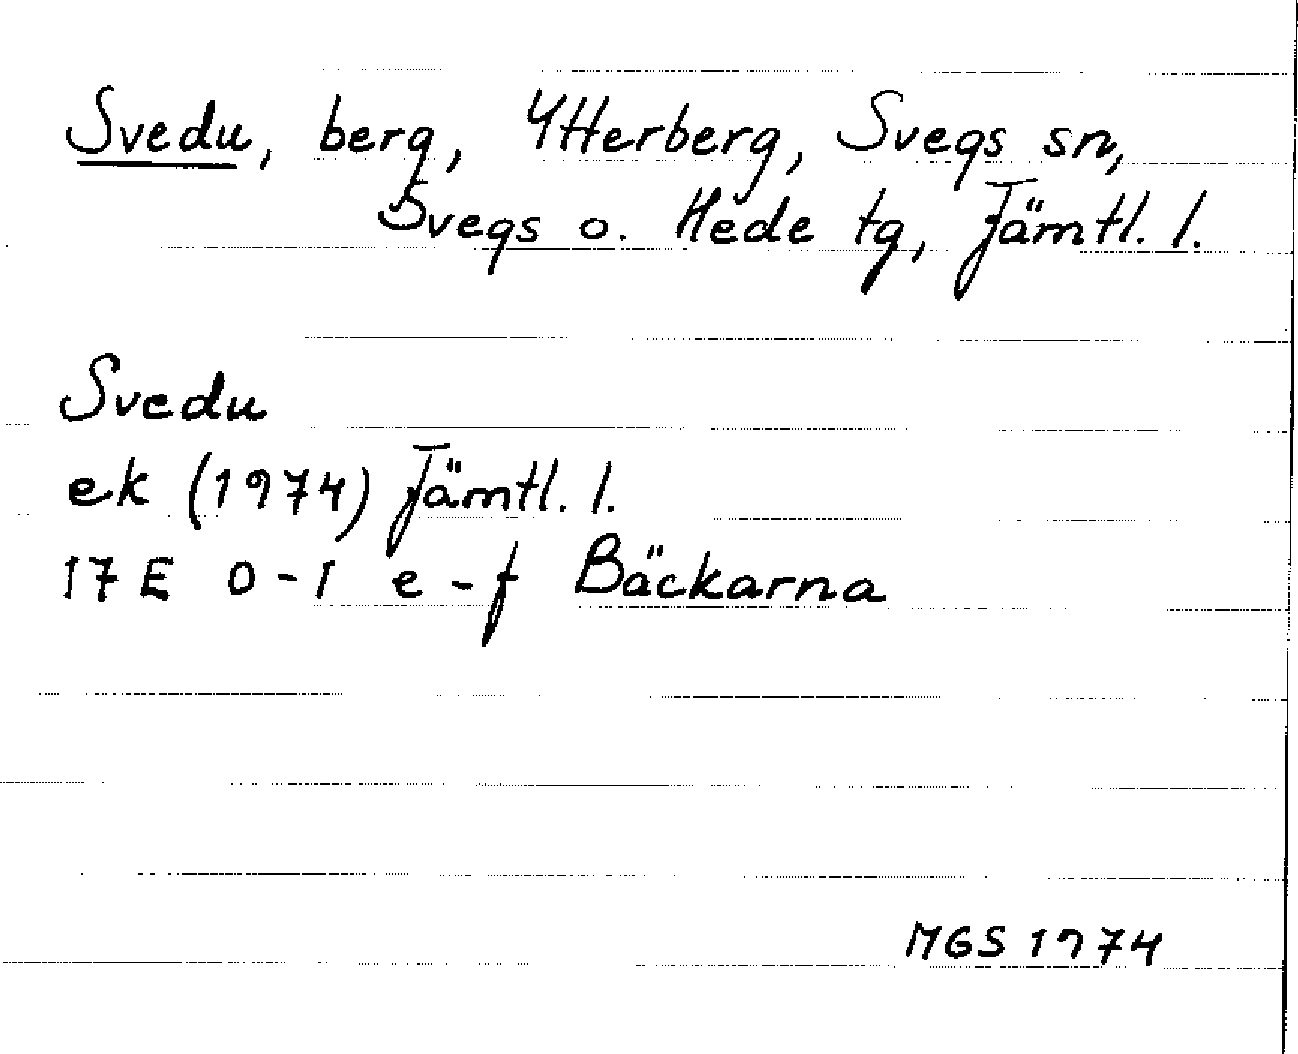 Svedu, berg, Ytterberg, Svegs sn,
Svegs o. Hede tg, Jämtl. l.
Svedu
ek (1974) Jämtl. l.
17 E 0-1 e-f Bäckarna
MGS 1974